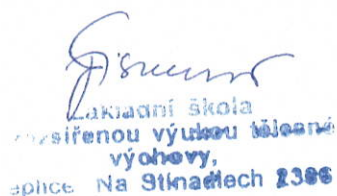 Základní škola
rozšířenou výukou tělesné
výchovy,
eplice Na Stínadlech 2386